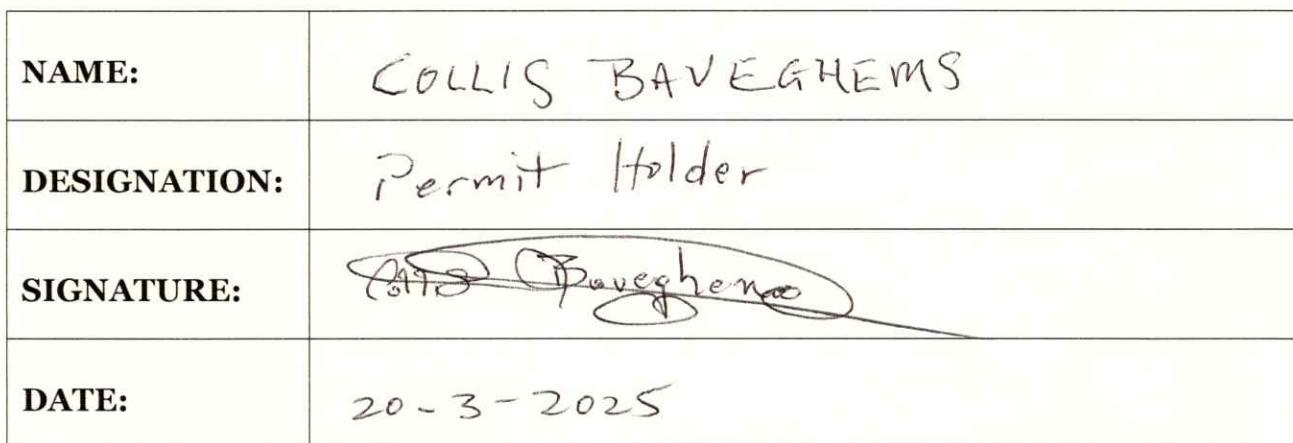 NAME: COLLIS BAVEGHEMS
DESIGNATION: Permit Holder
SIGNATURE:
DATE: 20-3-2025